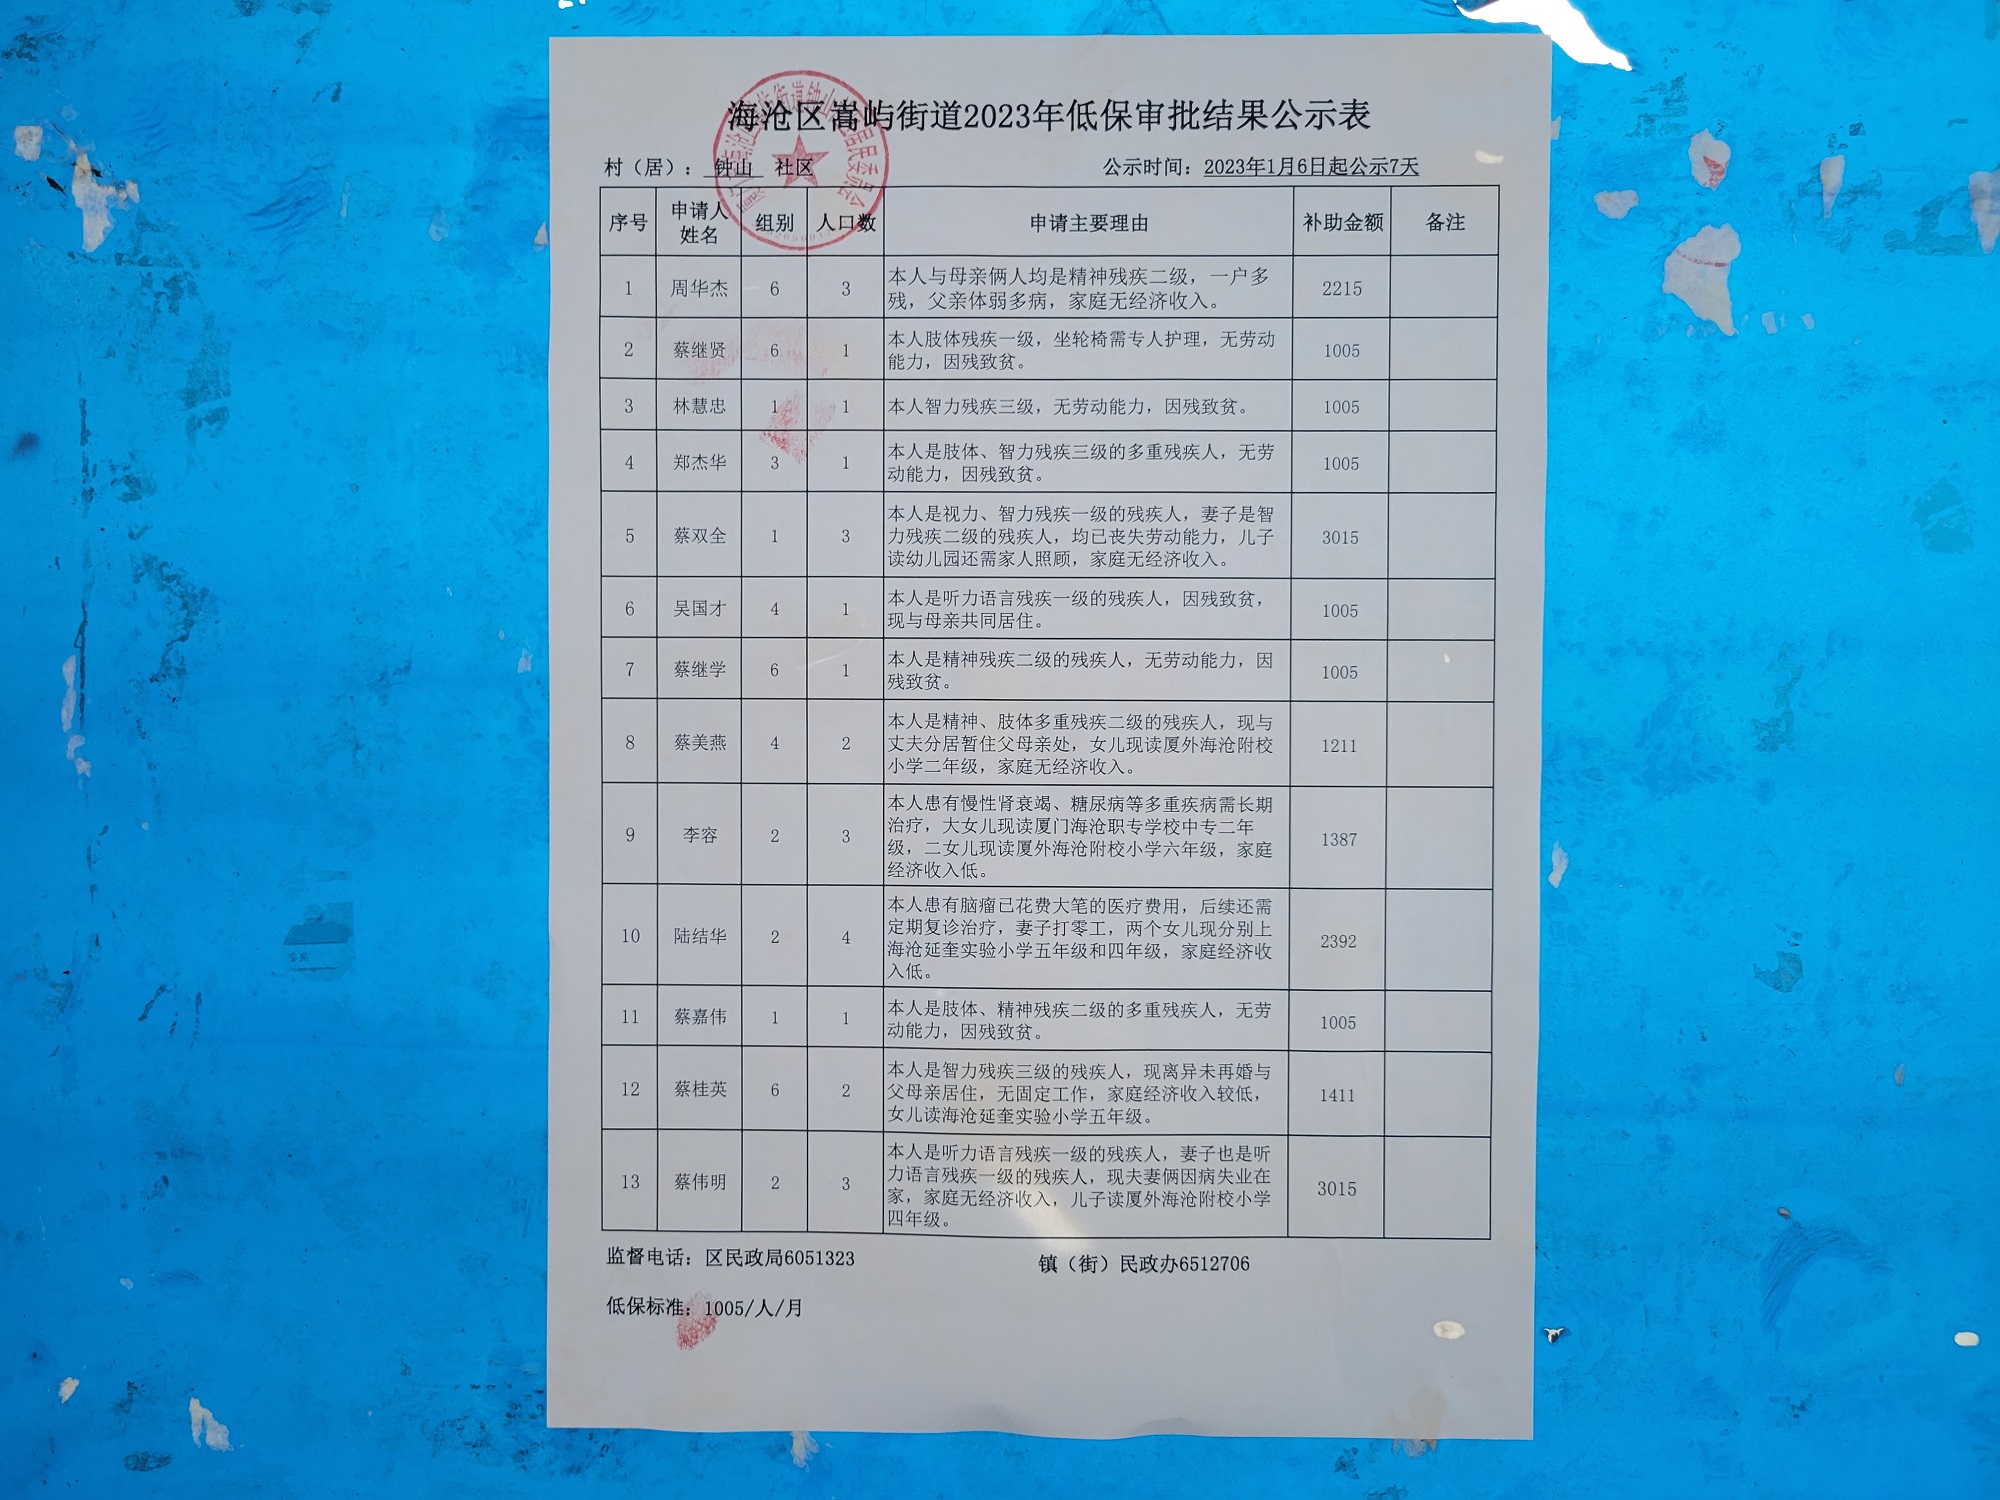 海沧区嵩屿街道2023年低保审批结果公示表
村（居）： 钟山 社区 公示时间：2023年1月6日起公示7天
序号 申请人姓名 组别 人口数 申请主要理由 补助金额 备注
1 周华杰 6 3 本人与母亲俩人均是精神残疾二级，一户多
残，父亲体弱多病，家庭无经济收入。 2215
2 蔡继贤 6 1 本人肢体残疾一级，坐轮椅需专人护理，无劳动
能力，因残致贫。 1005
3 林慧忠 1 1 本人智力残疾三级，无劳动能力，因残致贫。 1005
4 郑杰华 3 1 本人是肢体、智力残疾三级的多重残疾人，无劳
动能力，因残致贫。 1005
5 蔡双全 1 3 本人是视力、智力残疾一级的残疾人，妻子是智
力残疾二级的残疾人，均已丧失劳动能力，儿子
读幼儿园还需家人照顾，家庭无经济收入。 3015
6 吴国才 4 1 本人是听力语言残疾一级的残疾人，因残致贫，
现与母亲共同居住。 1005
7 蔡继学 6 1 本人是精神残疾二级的残疾人，无劳动能力，因
残致贫。 1005
8 蔡美燕 4 2 本人是精神、肢体多重残疾二级的残疾人，现与
丈夫分居暂住父母亲处，女儿现读厦外海沧附校
小学二年级，家庭无经济收入。 1211
9 李容 2 3 本人患有慢性肾衰竭、糖尿病等多重疾病需长期
治疗，大女儿现读厦门海沧职专学校中专二年
级，二女儿现读厦外海沧附校小学六年级，家庭
经济收入低。 1387
10 陆结华 2 4 本人患有脑瘤已花费大笔的医疗费用，后续还需
定期复诊治疗，妻子打零工，两个女儿现分别上
海沧延奎实验小学五年级和四年级，家庭经济收
入低。 2392
11 蔡嘉伟 1 1 本人是肢体、精神残疾二级的多重残疾人，无劳
动能力，因残致贫。 1005
12 蔡桂英 6 2 本人是智力残疾三级的残疾人，现离异未再婚与
父母亲居住，无固定工作，家庭经济收入较低，
女儿读海沧延奎实验小学五年级。 1411
13 蔡伟明 2 3 本人是听力语言残疾一级的残疾人，妻子也是听
力语言残疾一级的残疾人，现夫妻俩因病失业在
家，家庭无经济收入，儿子读厦外海沧附校小学
四年级。 3015
监督电话：区民政局6051323 镇（街）民政办6512706
低保标准：1005/人/月